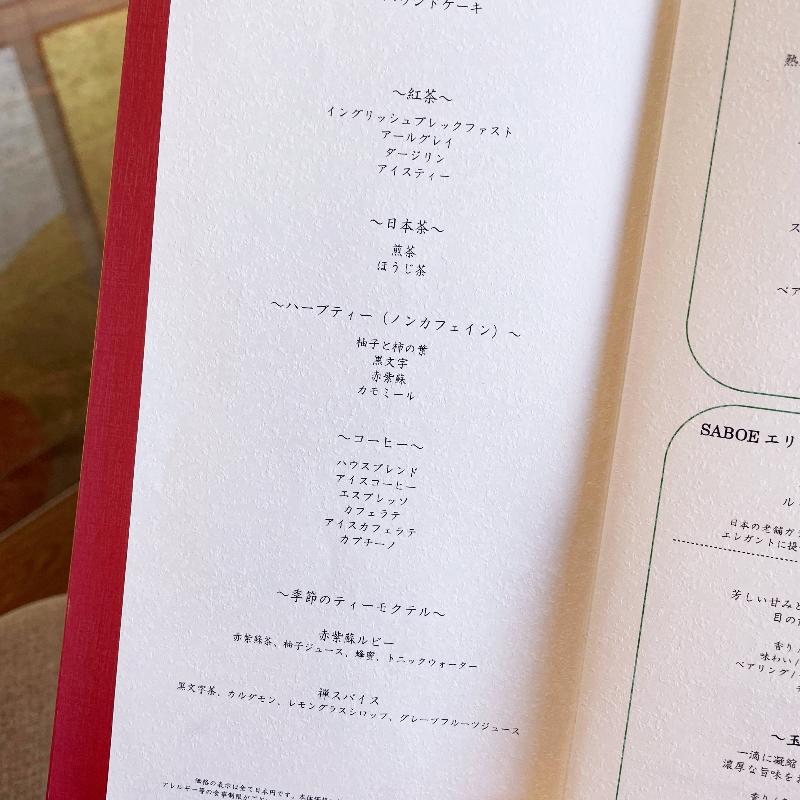 ケーキ
～紅茶～
イングリッシュブレックファスト
アールグレイ
ダージリン
アイスティー
～日本茶～
煎茶
ほうじ茶
～ハーブティー（ノンカフェイン）～
柚子と柿の葉
黒文字
赤紫蘇
カモミール
～コーヒー～
ハウスブレンド
アイスコーヒー
エスプレッソ
カフェラテ
アイスカフェラテ
カプチーノ
～季節のティーモクテル～
赤紫蘇ルビー
赤紫蘇茶、柚子ジュース、蜂蜜、トニックウォーター
禅スパイス
黒文字茶、カルダモン、レモングラスシロップ、グレープフルーツジュース
価格の表示は全て日本円です。本体価格
アレルギー等の食事制限が
熱
ス
ペア
SABOE エリ
ル
日本の老舗ガ
エレガントに提
芳しい甘みと
目の
香り/
味わい/
ペアリング/
～玉
一滴に凝縮
濃厚な旨味をお
香り/